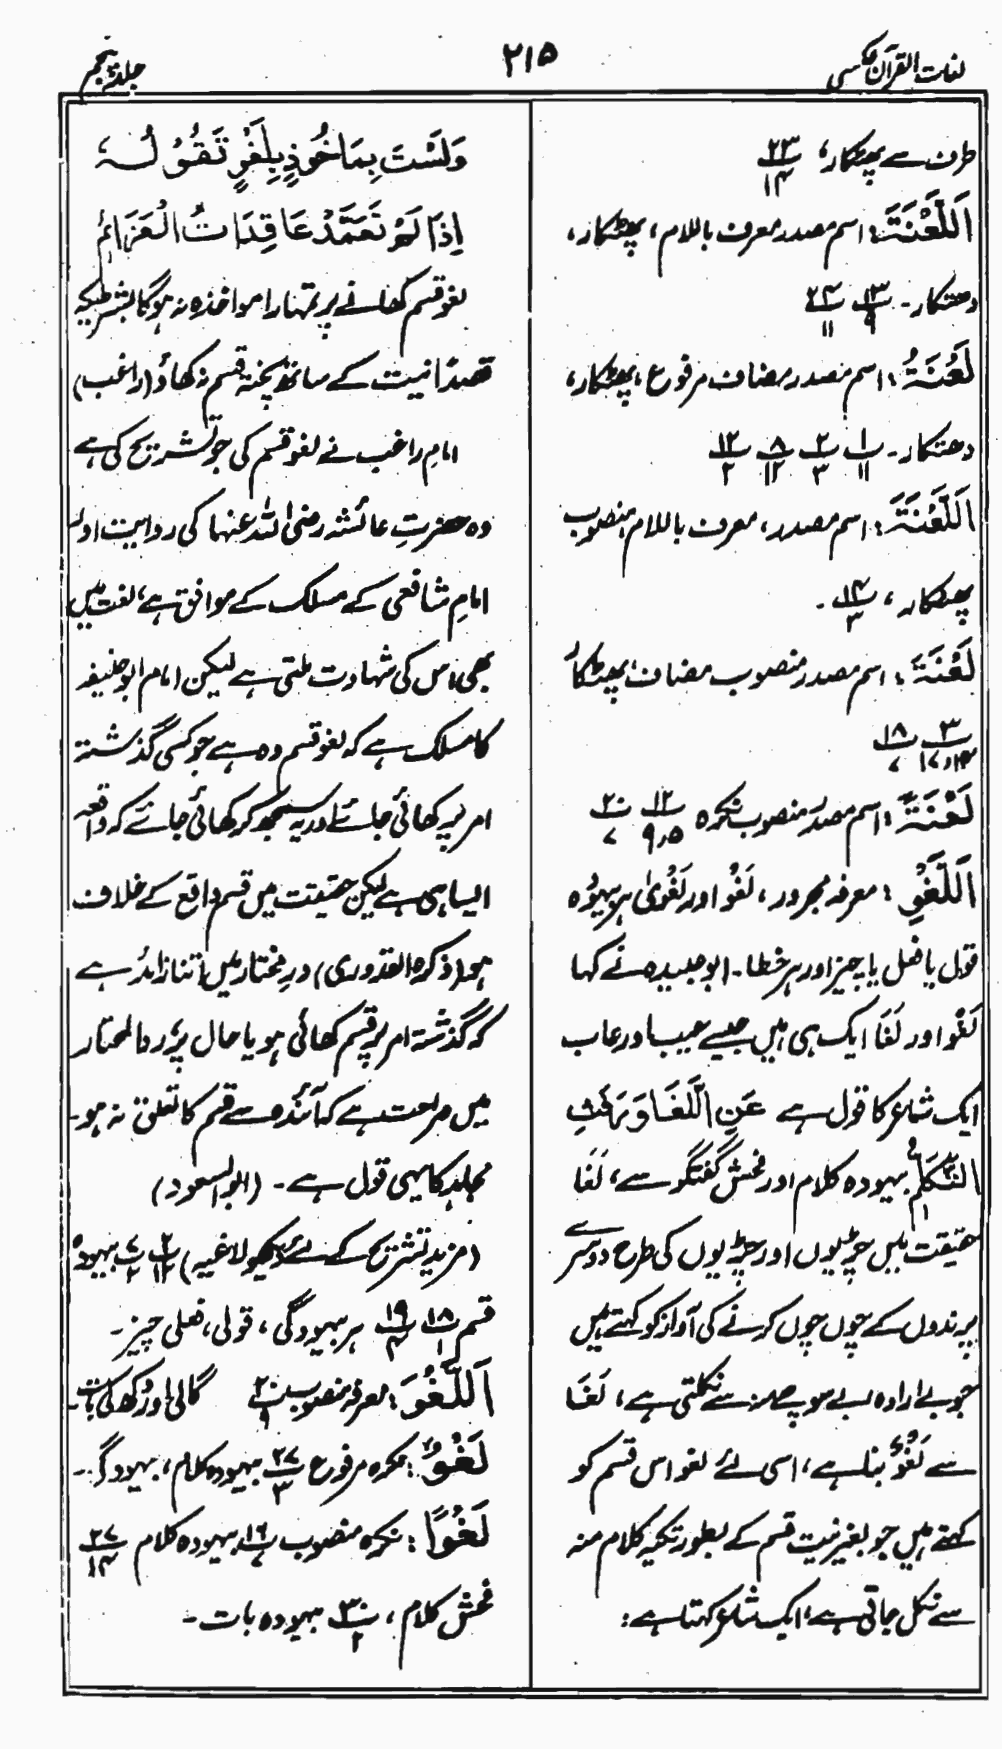 لغات القرآن عکسی
۲۱۵
جلد پنجم
طرف سے پھٹکار، ۲۳/۱۴
اَللَّعْنَةَ: اسم مصدر معرف باللام، پھٹکار،
دھتکار۔ ۱۳/۹ ۲۴/۱۱
لَعْنَةُ: اسم مصدر مضاف مرفوع، پھٹکار،
دھتکار۔ ۱/۱۱ ۲/۳ ۸/۱۲ ۱۲/۲
اَللَّعْنَةَ: اسم مصدر، معرف باللام منصوب
پھٹکار، ۱۴/۳۔
لَعْنَةَ: اسم مصدر منصوب مضاف، پھٹکار
۳/۱۴،۱۷ ۱۸/۷
لَعْنَةً: اسم مصدر منصوب نکرہ ۱۲/۹،۵ ۲۰/۷
اَللَّغْوِ: معرفہ مجرور، لَغْوٌ اور لَغْوٰی ہر بیہودہ
قول یا فعل یا چیز اور ہر خطا۔ ابو عبیدہ نے کہا
لَغْو اور لَغَا ایک ہی ہیں جیسے عیب اور عاب
ایک شاعر کا قول ہے عَنِ اللَّغَا وَرَفَثِ
التَّکَلُّمِ بیہودہ کلام اور فحش گفتگو سے، لَغَا
حقیقت میں چڑیوں اور چڑیوں کی طرح دوسرے
پرندوں کے چوں چوں کرنے کی آواز کو کہتے ہیں
جو بے ارادہ بے سوچے منہ سے نکلتی ہے، لَغَا
سے لَغْوٌ بنا ہے، اسی لئے لغو اس قسم کو
کہتے ہیں جو بغیر نیت قسم کے بطور تکیہ کلام منہ
سے نکل جاتی ہے، ایک شاعر کہتا ہے:
وَلَسْتَ بِمَاخُوْذٍ بِلَغْوٍ تَقُوْلُہٗ
اِذَا لَمْ تَعَمَّدْ عَاقِدَاتُ الْعَزَائِمِ
لغو قسم کھانے پر تمہارا مواخذہ نہ ہوگا بشرطیکہ
قصدًا نیت کے ساتھ پختہ قسم نہ کھاؤ (راغب)
امام راغب نے لغو قسم کی جو تشریح کی ہے
وہ حضرتِ عائشہ رضی اللہ عنہا کی روایت اور
امامِ شافعی کے مسلک کے موافق ہے، لغت میں
بھی اس کی شہادت ملتی ہے لیکن امام ابو حنیفہ
کا مسلک ہے کہ لغو قسم وہ ہے جو کسی گذشتہ
امر پر کھائی جائے اور یہ سمجھ کر کھائی جائے کہ واقعہ
ایسا ہی ہے لیکن حقیقت میں قسم واقع کے خلاف
ہو (ذکرہ القدوری) در مختار میں اتنا زائد ہے
کہ گذشتہ امر پر قسم کھائی ہو یا حال پر، رد المحتار
میں صراحت ہے کہ آئندہ سے قسم کا تعلق نہ ہو۔
مجاہد کا یہی قول ہے۔ (ابو السعود)
(مزید تشریح کے لئے دیکھو لاغیہ) ۲/۱۲ ۷/۲ بیہودہ
قسم ۱۸/۱ ۱۹/۴ ہر بیہودگی، قولی، فعلی چیز۔
اَللَّغْوَ: معرفہ منصوب ۲۰/۹ گالی اور دکھ کی بات۔
لَغْوٌ: نکرہ مرفوع ۲۷/۳ بیہودہ کلام، بیہودگی۔
لَغْوًا: نکرہ منصوب ۱۶/۷ بیہودہ کلام ۲۷/۱۴
فحش کلام، ۳۰/۲ بیہودہ بات۔